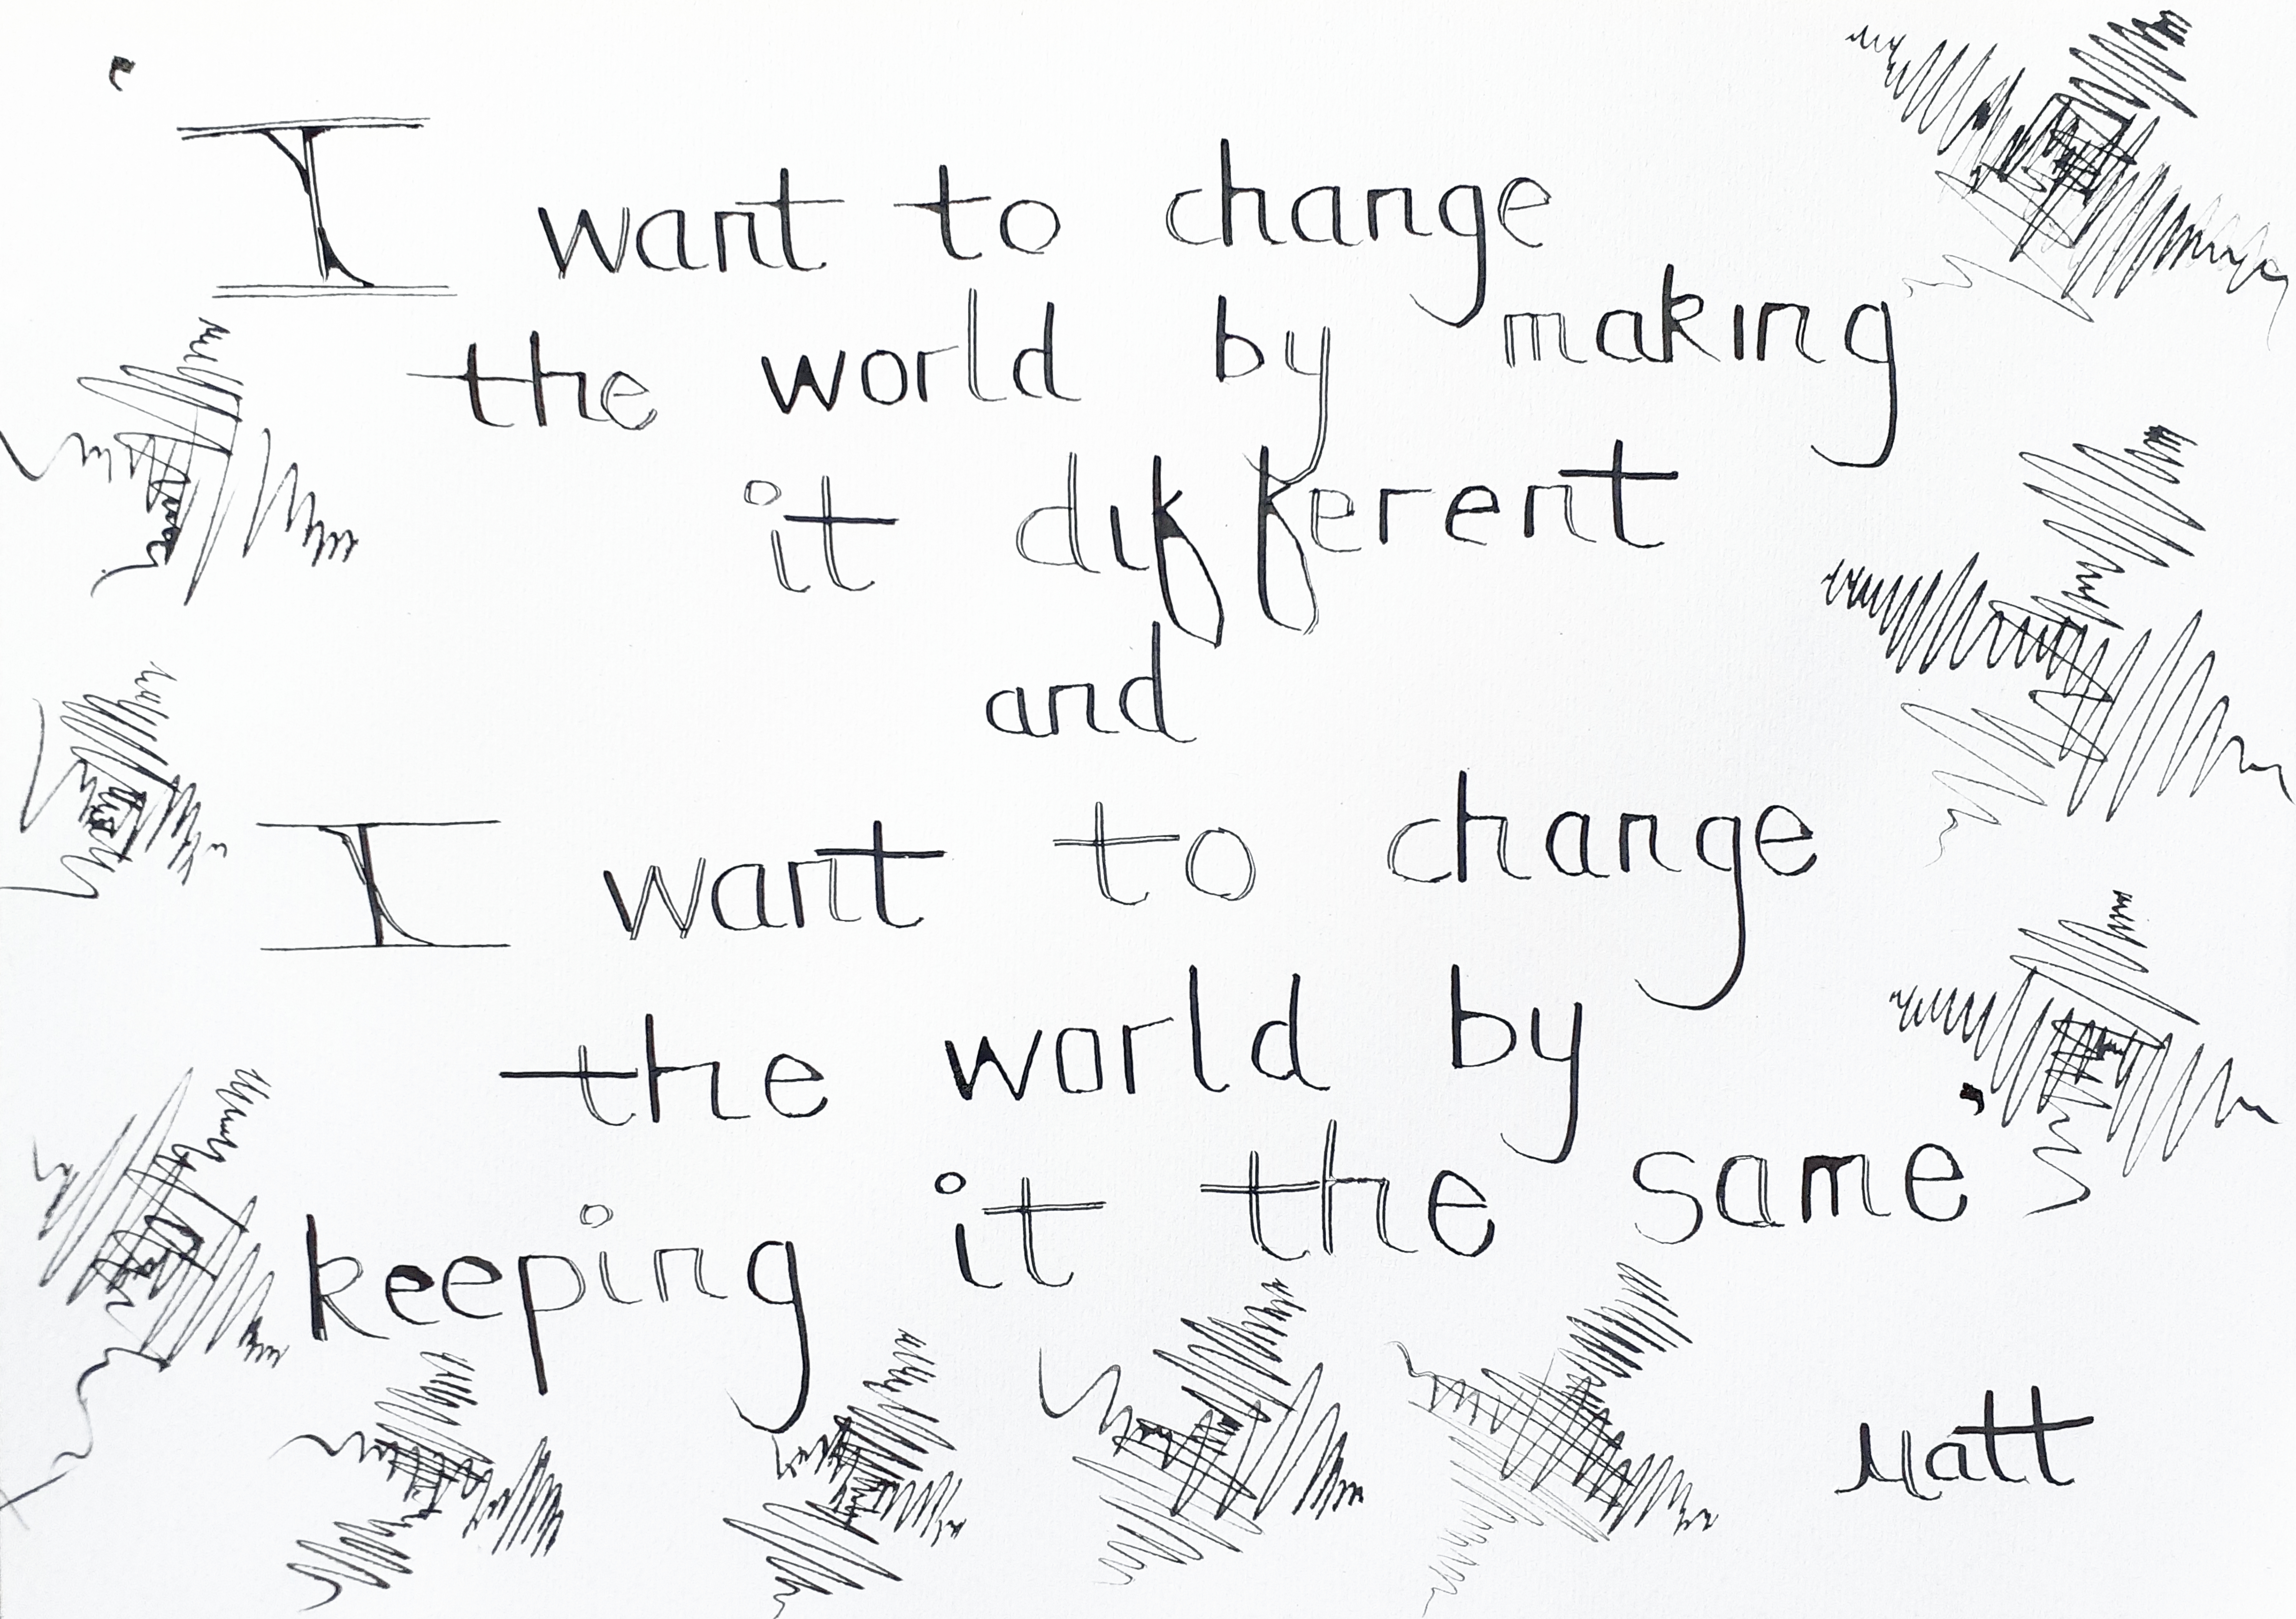 'I want to change
the world by making
it different
and
I want to change
the world by
keeping it the same'
Matt